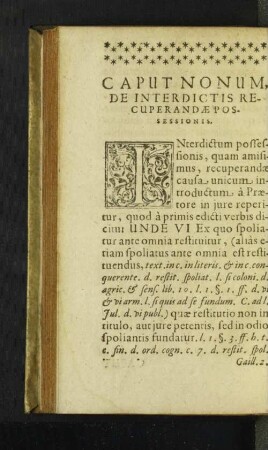 CAPUT NONUM,
DE INTERDICTIS RE-
CUPERANDÆ POS-
SESSIONIS.
INterdictum posses-
sionis, quam amisi-
mus, recuperandæ
causa unicum in-
troductum à Præ-
tore in jure reperi-
tur, quod à primis edicti verbis di-
citur UNDE VI Ex quo spolia-
tur ante omnia restituitur, (aliás e-
tiam spoliatus ante omnia est resti-
tuendus, text. in c. in literis. & in c. con-
querente. d. restit. spoliat. l. si coloni. d.
agric. & cens. lib. 10. l. 1. §. 1. ff. d. vi
& vi arm. l. si quis ad se fundum. C. ad l.
Jul. d. vi publ.) quæ restitutio non in
titulo, aut jure petentis, sed in odio
spoliantis fundatur. l. 1. §. 3. ff. h. t.
c. fin. d. ord. cogn. c. 7. d. restit. spol.
Gaill. 2.